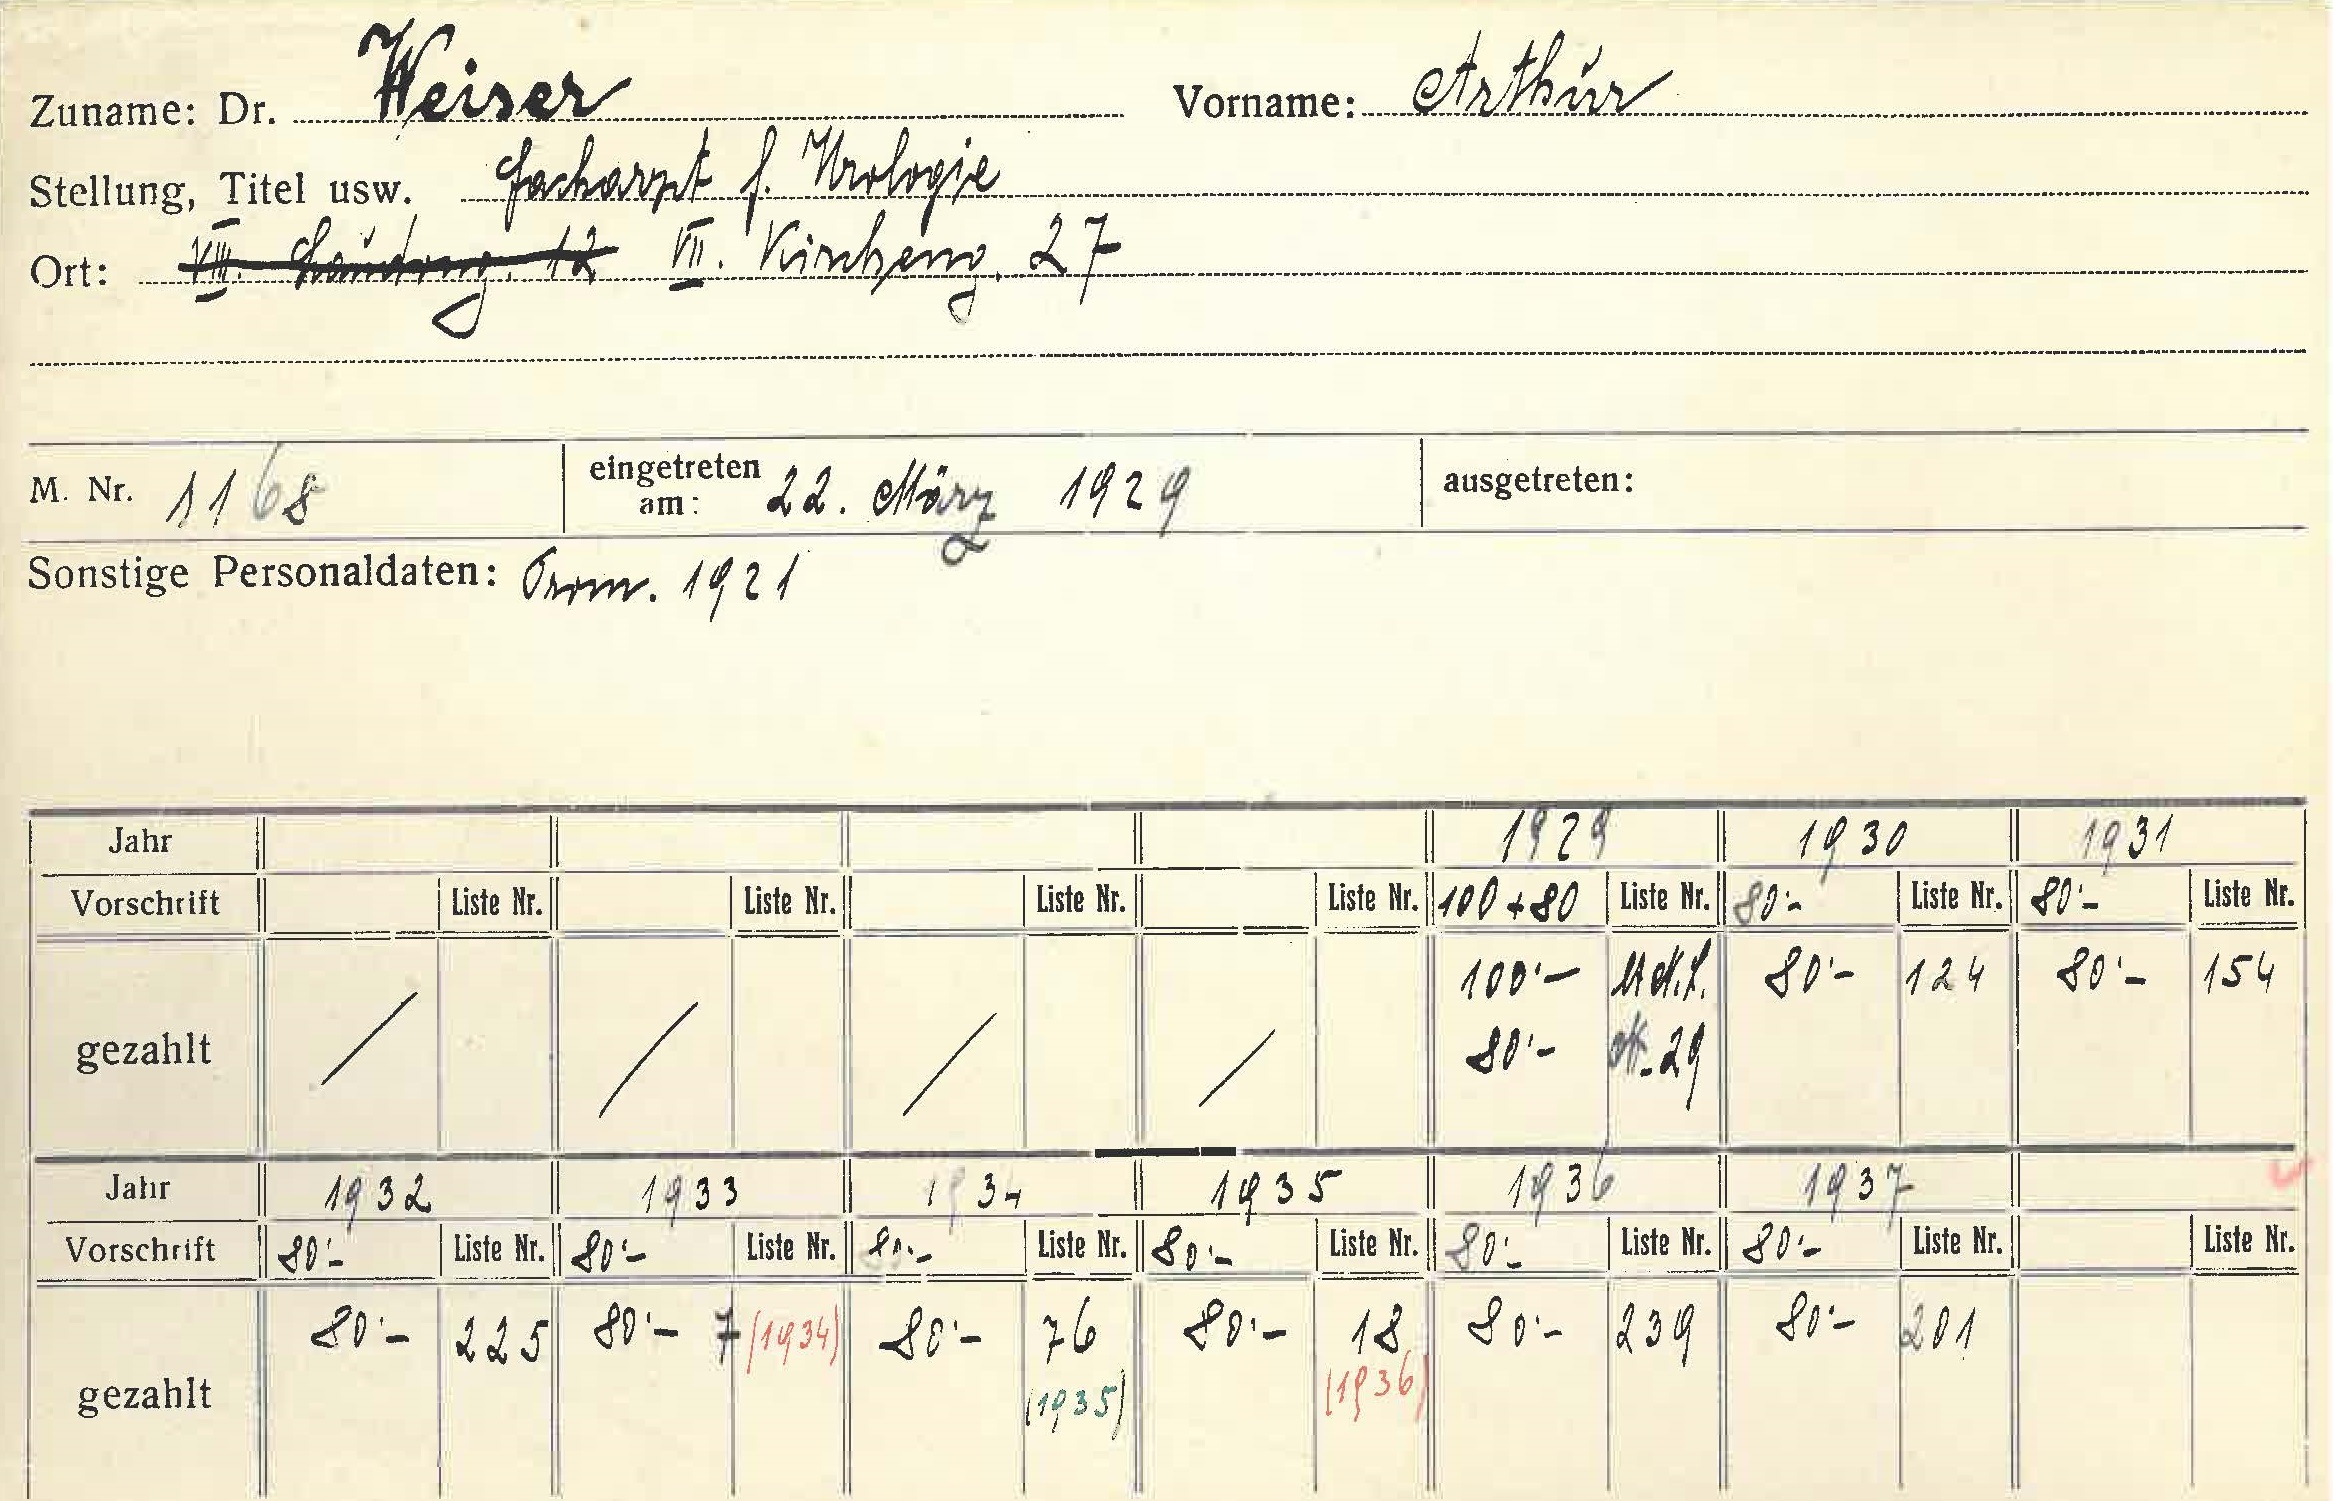 Zuname: Dr. Weiser Vorname: Arthur
Stellung, Titel usw. Facharzt f. Urologie
Ort: VIII. Laudong. 12 VII. Kircheng. 27
M. Nr. 1168 eingetreten am: 22. März 1929 ausgetreten:
Sonstige Personaldaten: Prom. 1921
Jahr 1929 1930 1931
Vorschrift Liste Nr. Liste Nr. Liste Nr. Liste Nr. 100 + 80 Liste Nr. 80'- Liste Nr. 80'- Liste Nr.
gezahlt / / / / 100'- 80'- 124 80'- 154
80'- 29
Jahr 1932 1933 1934 1935 1936 1937
Vorschrift 80'- Liste Nr. 80'- Liste Nr. 80'- Liste Nr. 80'- Liste Nr. 80'- Liste Nr. 80'- Liste Nr. Liste Nr.
gezahlt 80'- 225 80'- 7 (1934) 80'- 76 80'- 18 80'- 239 80'- 201
(1935) (1936)